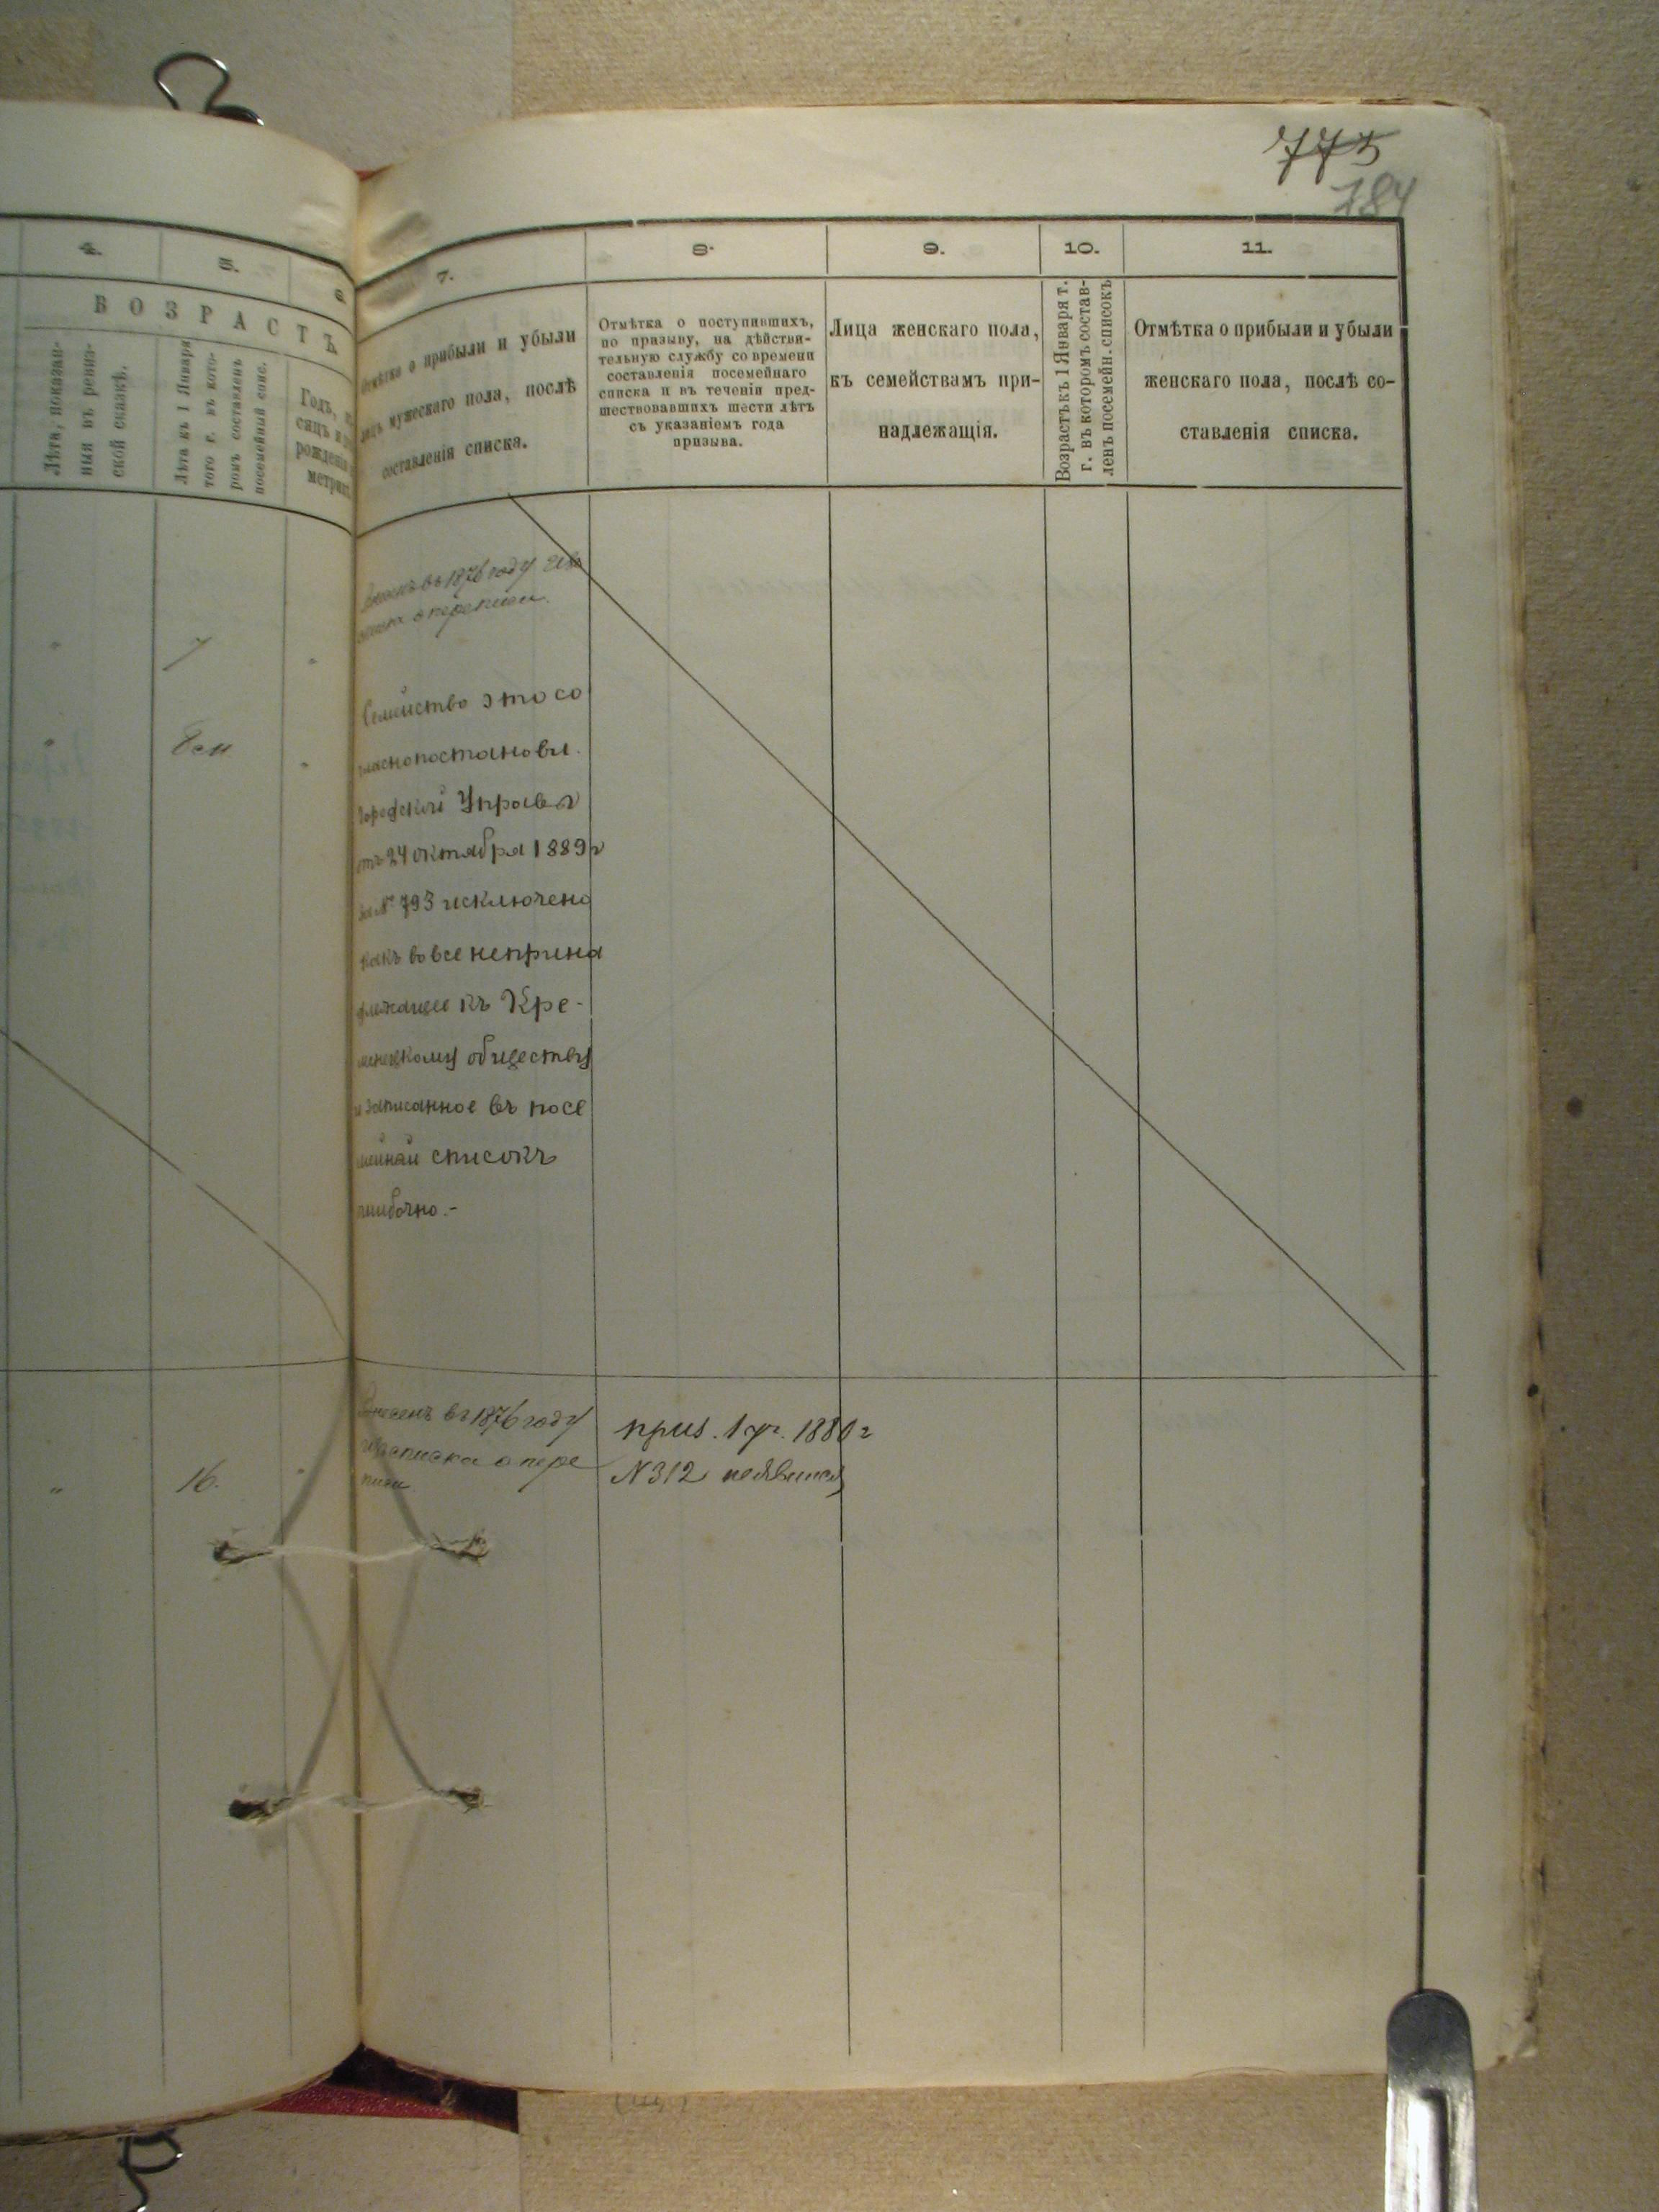 775
784
4.
5.
6
ВОЗРАСТЪ.
Лѣта, показан-
ныя въ ревиз-
ской сказкѣ.
Лѣта къ 1 Января
того г. въ кото-
ромъ составленъ
посемейный спис.
Годъ,
сяцъ и
рожденія
метрик.
7.
8.
9.
10.
11.
Отмѣтка о прибыли и убыли
лицъ мужескаго пола, послѣ
составленія списка.
Отмѣтка о поступившихъ,
по призыву, на дѣйстви-
тельную службу со времени
составленія посемейнаго
списка и въ теченіи пред-
шествовавшихъ шести лѣтъ
съ указаніемъ года
призыва.
Лица женскаго пола,
къ семействамъ при-
надлежащія.
Возрастъ къ 1 Января т.
г. въ которомъ состав-
ленъ посемейн. списокъ
Отмѣтка о прибыли и убыли
женскаго пола, послѣ со-
ставленія списка.
въ 1876 году
о переписи.
7
8 м
Семейство это со
гласно постановл.
Городской Управы
отъ 24 октября 1889 г
за № 793 исключено
какъ вовсе неприна
длежащее къ Кре-
менецкому обществу
и записанное въ посе
мейнай списокъ
ошибочно.-
Внесенъ въ 1876 году
о пере
писи
"
16.
приз. 1 уч. 1880 г
N 312 неявился